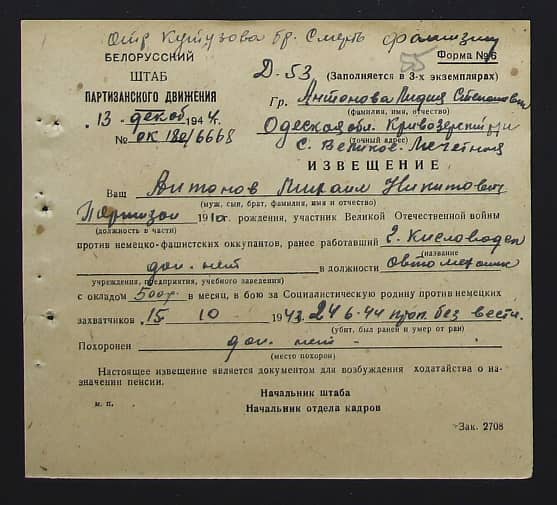 Отр Кутузова бр. Смерть фашизму
БЕЛОРУССКИЙ
ШТАБ
ПАРТИЗАНСКОГО ДВИЖЕНИЯ
13 декаб 1944 г.
№ ок 180/6668
Форма № 6
55
Д-53 (Заполняется в 3-х экземплярах)
Гр. Антонова Лидия Степановн
(фамилия, имя, отчество)
Одеская обл. Кривозерский
(точный адрес)
с. Великое-Мечетная
ИЗВЕЩЕНИЕ
Ваш Антонов Михаил Никитович
(муж, сын, брат, фамилия, имя и отчество)
Партизан 1910 г. рождения, участник Великой Отечественной войны
(должность в части)
против немецко-фашистских оккупантов, ранее работавший г. Кисловодск
(название
дан. нет в должности Овтомеханик
учреждения, предприятия, учебного заведения)
с окладом 500 р. в месяц, в бою за Социалистическую родину против немецких
захватчиков 15 10 1943. 24 6-44 проп. без вести.
(убит, был ранен и умер от ран)
Похоронен дан. нет -
(место похорон)
Настоящее извещение является документом для возбуждения ходатайства о на-
значении пенсии.
Начальник штаба
м. п. Начальник отдела кадров
Зак. 2708